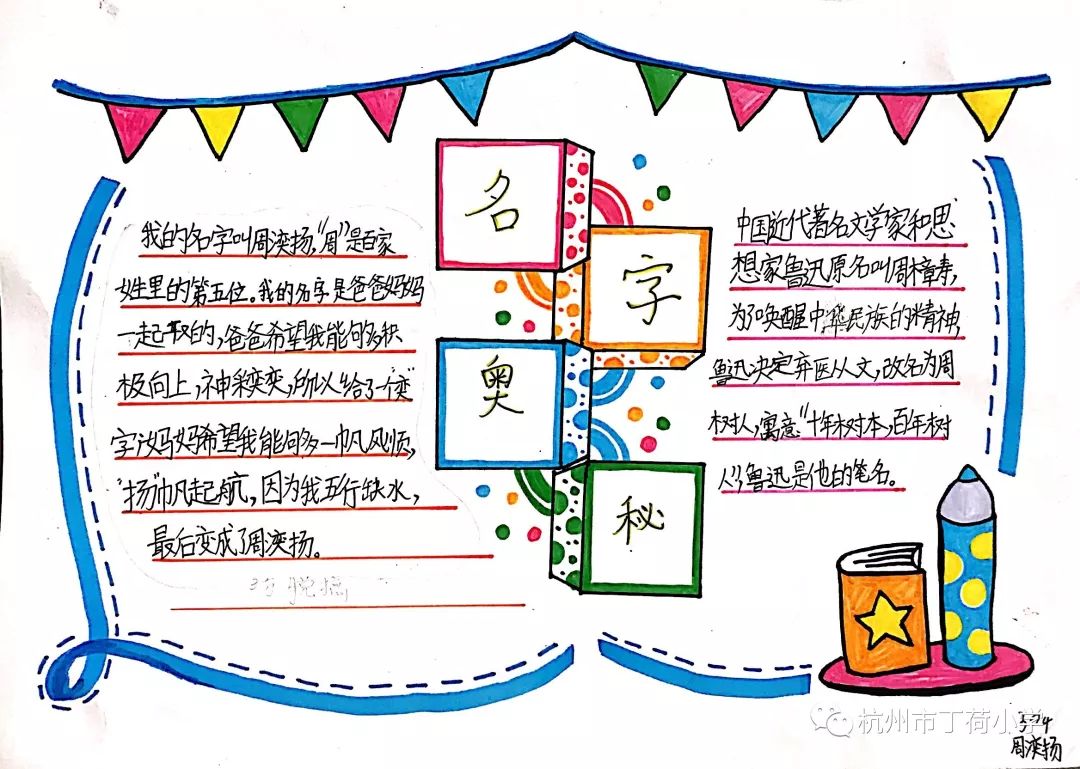 名
字
奥
秘
我的名字叫周滨扬,"周"是百家
姓里的第五位。我的名字是爸爸妈妈
一起取的,爸爸希望我能够多积
极向上,神采奕奕,所以给了一个"奕"
字,妈妈希望我能够多一帆风顺,
"扬"帆起航,因为我五行缺水,
最后变成了周湙扬。
中国近代著名文学家和思
想家鲁迅原名叫周樟寿,
为了唤醒中华民族的精神,
鲁迅决定弃医从文,改名为周
树人,寓意"十年树木,百年树
人"鲁迅是他的笔名。
周湙扬
杭州市丁荷小学